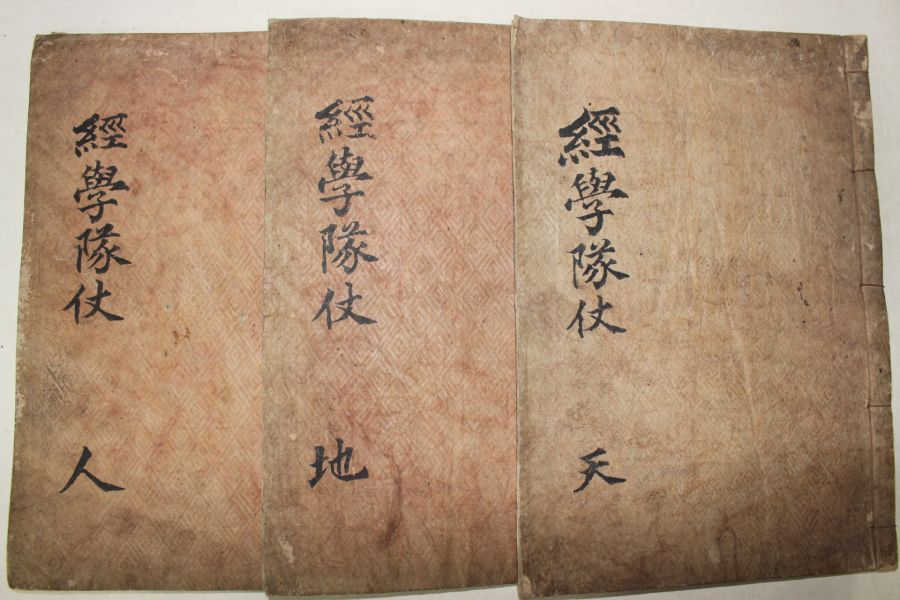 經學隊仗
天
經學隊仗
地
經學隊仗
人